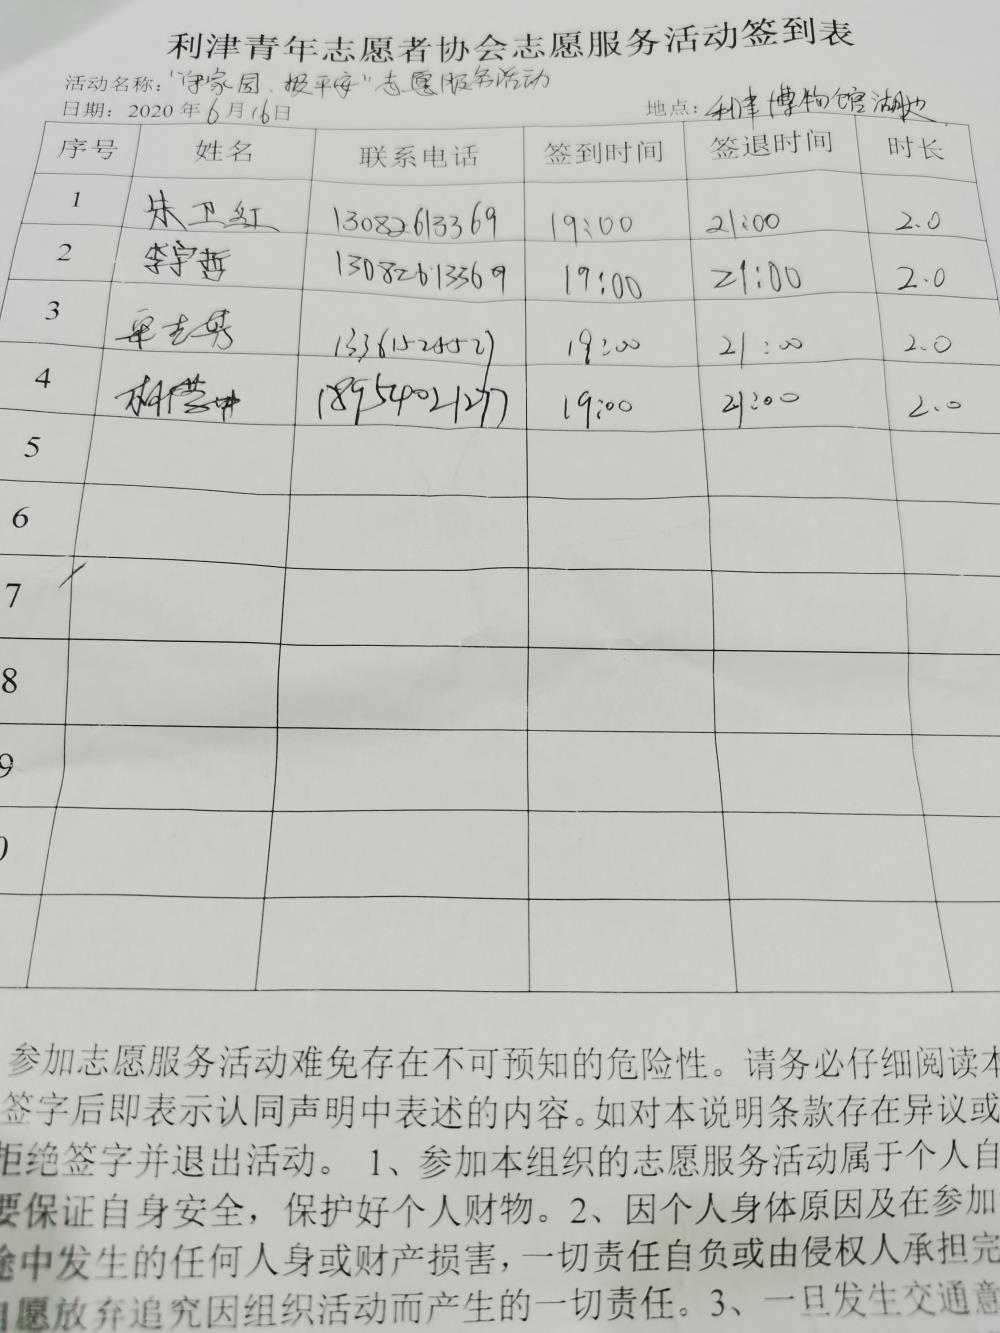 利津青年志愿者协会志愿服务活动签到表
活动名称："守家园、报平安"志愿服务活动
日期：2020年6月16日 地点：利津博物馆湖边
序号 姓名 联系电话 签到时间 签退时间 时长
1 朱卫红 13082613369 19:00 21:00 2.0
2 李宇哲 13082613369 19:00 21:00 2.0
3 19:00 21:00 2.0
4 18954021277 19:00 21:00 2.0
5
6
7
8
9
0
参加志愿服务活动难免存在不可预知的危险性。请务必仔细阅读本
签字后即表示认同声明中表述的内容。如对本说明条款存在异议或
拒绝签字并退出活动。 1、参加本组织的志愿服务活动属于个人自
要保证自身安全，保护好个人财物。2、因个人身体原因及在参加
途中发生的任何人身或财产损害，一切责任自负或由侵权人承担完
自愿放弃追究因组织活动而产生的一切责任。3、一旦发生交通意